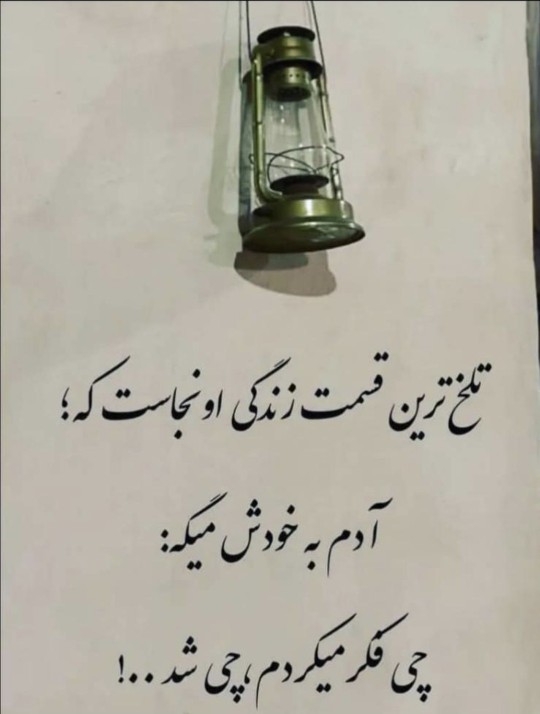 تلخ ترین قسمت زندگی اونجاست که؛
آدم به خودش میگه:
چی فکر میکردم ،چی شد ..!